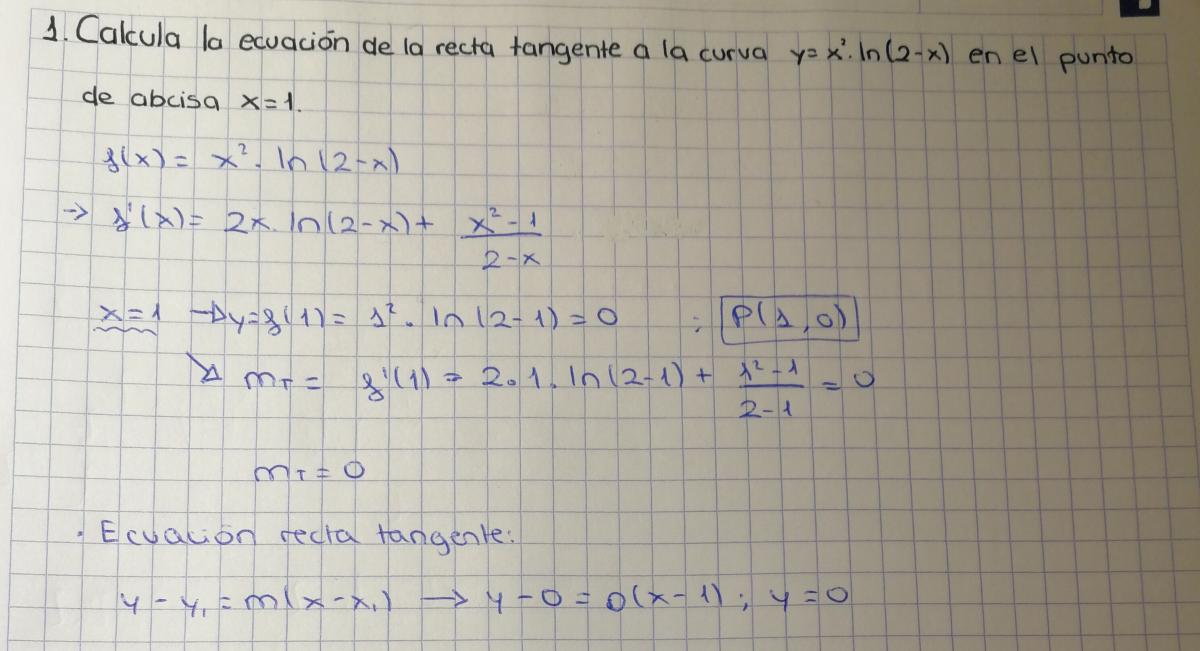 1. Calcula la ecuación de la recta tangente a la curva y=x²·ln(2-x) en el punto
de abcisa x=1.
f(x) = x²·ln(2-x)
→ f'(x) = 2x·ln(2-x) + (x²-1)/(2-x)
x=1 → y=f(1) = 1²·ln(2-1) = 0 ; P(1,0)
↘ mT = f'(1) = 2·1·ln(2-1) + (1²-1)/(2-1) = 0
mT = 0
· Ecuación recta tangente:
y - y₁ = m(x-x₁) → y-0 = 0(x-1); y=0